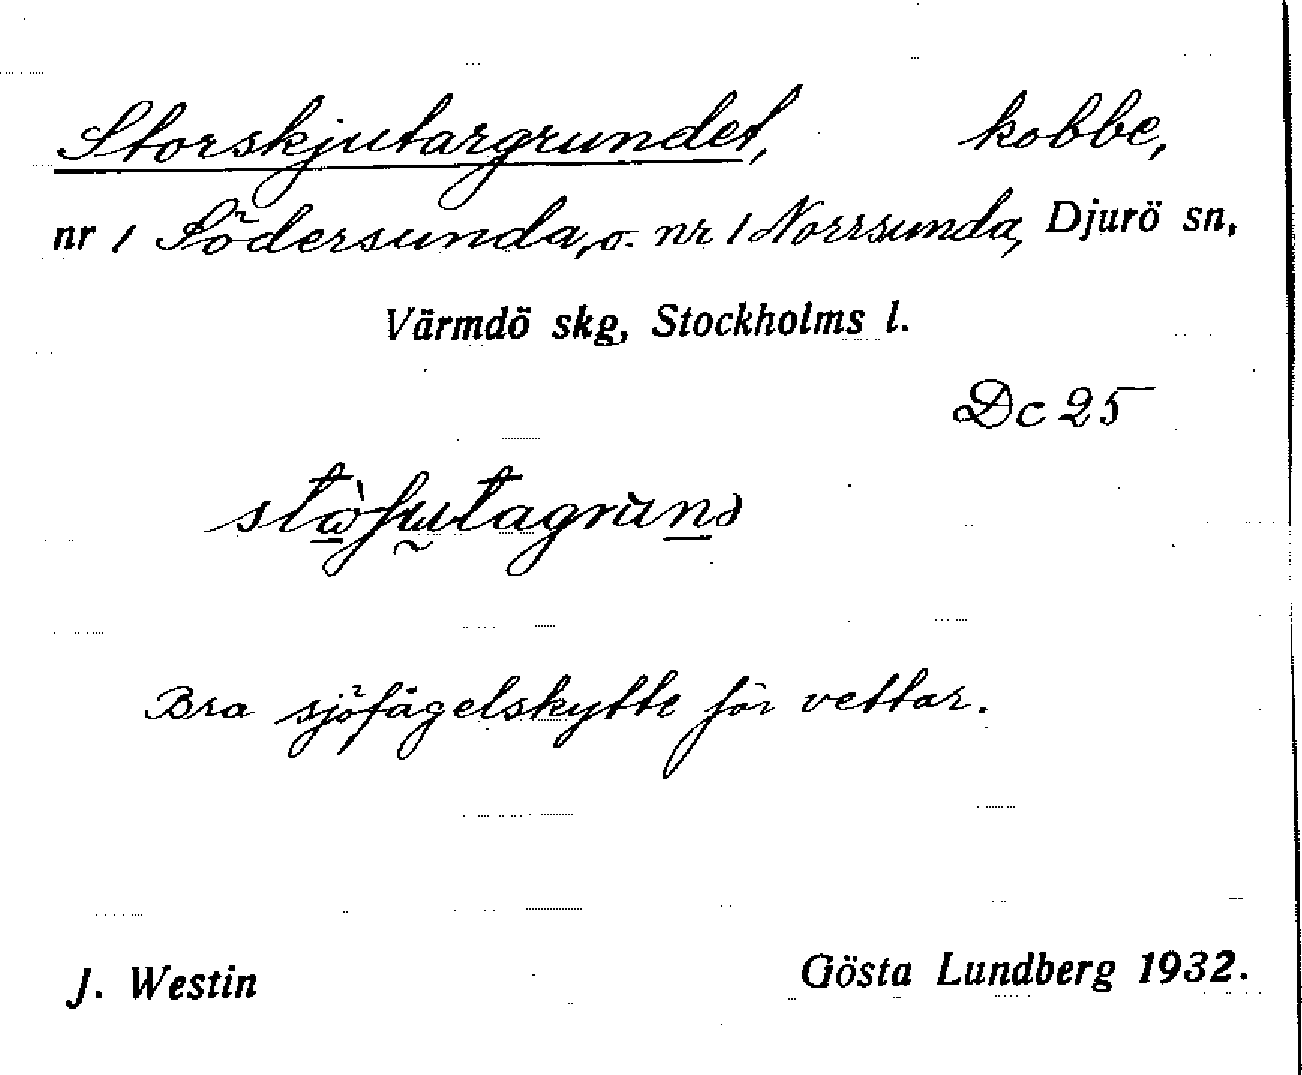 Storskjutargrundet, kobbe,
nr 1 Södersunda, o. nr 1 Norrsunda, Djurö sn,
Värmdö skg, Stockholms l.
Dc 25
Bra sjöfågelskytte för vettar.
J. Westin Gösta Lundberg 1932.